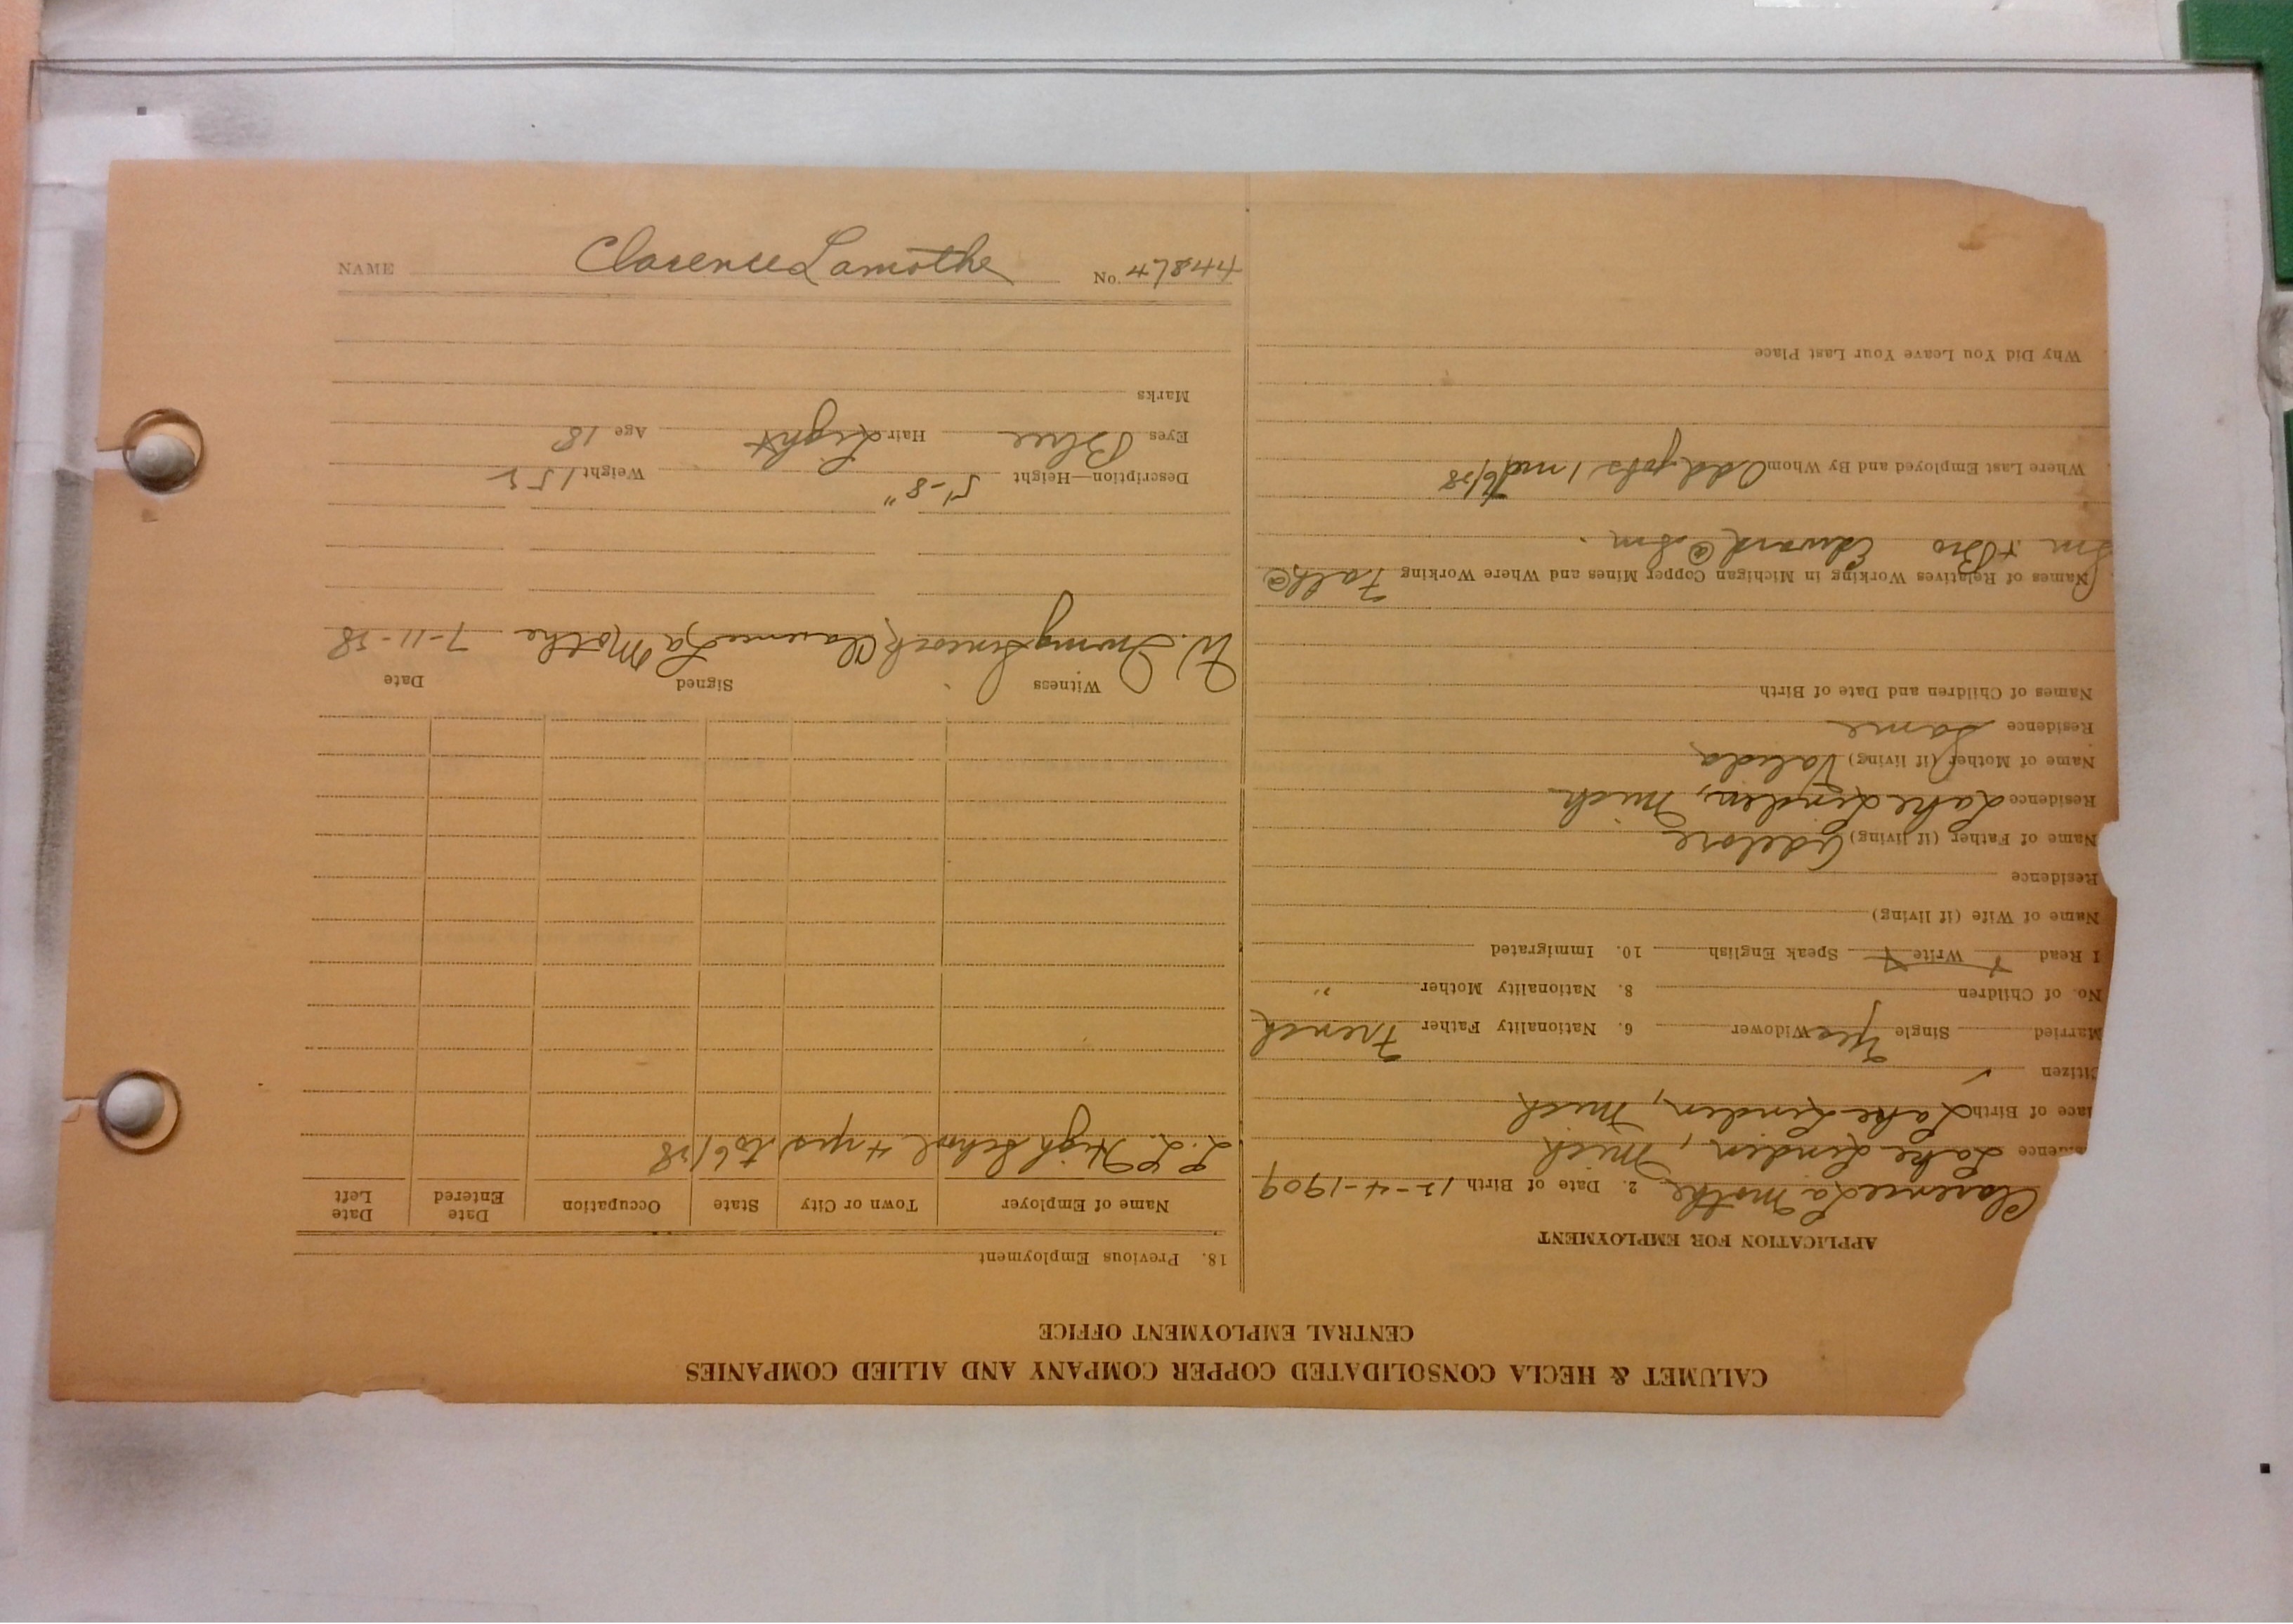 CALUMET & HECLA CONSOLIDATED COPPER COMPANY AND ALLIED COMPANIES
CENTRAL EMPLOYMENT OFFICE
APPLICATION FOR EMPLOYMENT
Clarence La Mothe 2. Date of Birth 12-4-1909
Lake Linden, Mich
lace of Birth Lake Linden, Mich
Citizen ✓
Married Single Yes Widower 6. Nationality Father French
No. of Children 8. Nationality Mother "
I Read Write Speak English 10. Immigrated
Name of Wife (if living)
Residence
Name of Father (if living) Adelore
Residence Lake Linden, Mich
Name of Mother (if living) Valida
Residence Same
Names of Children and Date of Birth
Names of Relatives Working in Michigan Copper Mines and Where Working Fath @
Sm + Bro Edward @ Sm.
Where Last Employed and By Whom Odd jobs 1 mo 6/28
Why Did You Leave Your Last Place
18. Previous Employment
Name of Employer Town or City State Occupation Date Entered Date Left
L. L. High School 4 yrs to 6/28
Witness Signed Date
W. Irving Clarence La Mothe 7-11-28
Description—Height 5'-8" Weight 152
Eyes Blue Hair Light Age 18
Marks
NAME Clarence Lamothe No.